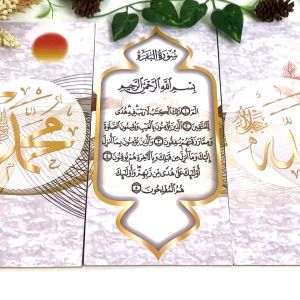 الله
سُورَةُ الْبَقَرَة
بِسْمِ اللَّهِ الرَّحْمَٰنِ الرَّحِيمِ
الٓمٓ ۝١ ذَٰلِكَ الْكِتَٰبُ لَا رَيْبَ فِيهِ هُدًى
لِّلْمُتَّقِينَ ۝٢ الَّذِينَ يُؤْمِنُونَ بِالْغَيْبِ وَيُقِيمُونَ الصَّلَوٰةَ
وَمِمَّا رَزَقْنَٰهُمْ يُنفِقُونَ ۝٣ وَالَّذِينَ يُؤْمِنُونَ بِمَا أُنزِلَ
إِلَيْكَ وَمَا أُنزِلَ مِن قَبْلِكَ وَبِالْآخِرَةِ هُمْ يُوقِنُونَ ۝٤
أُولَٰئِكَ عَلَىٰ هُدًى مِّن رَّبِّهِمْ وَأُولَٰئِكَ
هُمُ الْمُفْلِحُونَ ۝٥
محمد